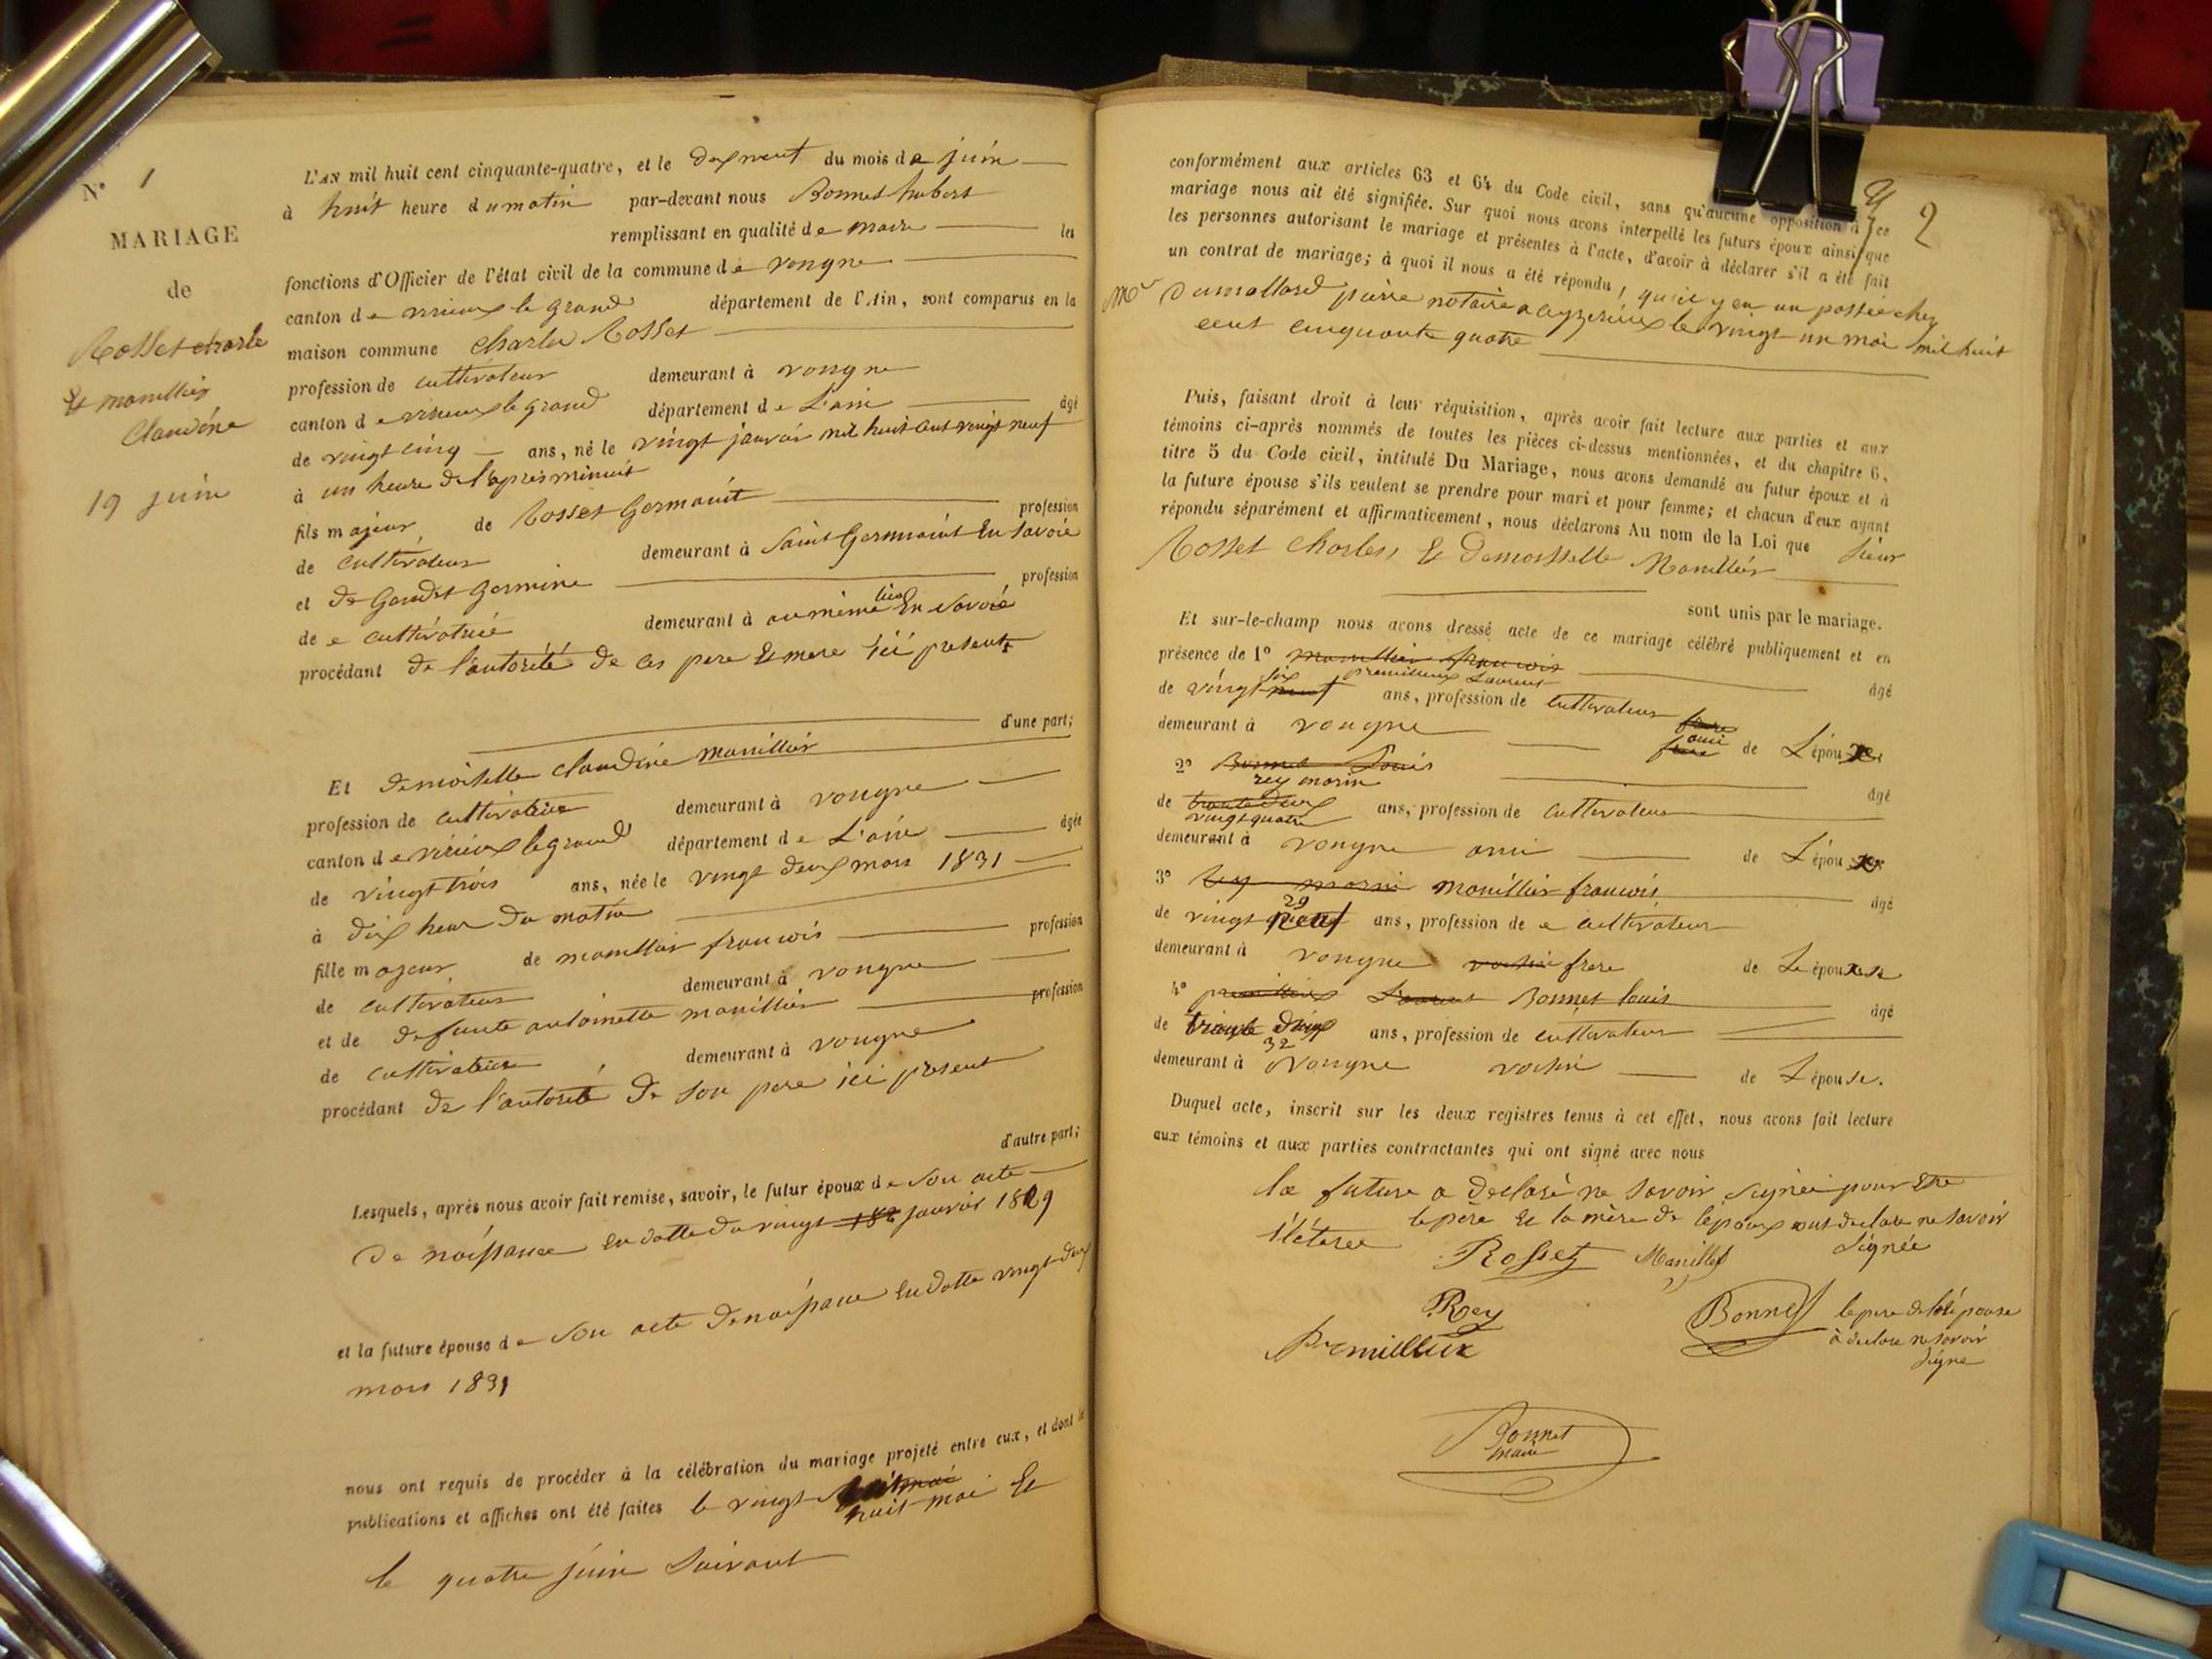 N° 1
MARIAGE
de
Rosset charle
Et manillier
Claudine
19 juin
L'AN mil huit cent cinquante-quatre, et le dixneuf du mois de juin
à huit heure du matin par-devant nous Bonnet hubert
remplissant en qualité de maire les
fonctions d'Officier de l'état civil de la commune de vongne
canton de virieux le grand département de l'Ain, sont comparus en la
maison commune Charles Rosset
profession de cultivateur demeurant à vongne
canton de virieux le grand département de L'ain âgé
de vingt cinq ans, né le vingt janvier mil huit cent vingt neuf
à un heure de l'apres minuit
fils majeur de Rosset Germain profession
de cultivateur demeurant à Saint Germain En Savoie
et de Gaudet Germine profession
de e cultivatrice demeurant à au même lieu En Savoie
procédant de l'autorité de ces pere Et mere ici present
d'une part;
Et demoiselle claudine manillier
profession de cultivatrice demeurant à vongne
canton de virieux le grand département de L'ain âgée
de vingt trois ans, née le vingt deux mars 1831
à dix heur du matin
fille majeur de manillier francois profession
de cultivateur demeurant à vongne
et de defunte antoinette manillier profession
de cultivatrice demeurant à vongne
procédant de l'autorité de son pere ici present
d'autre part;
Lesquels, après nous avoir fait remise, savoir, le futur époux de son acte
De naissance En datte du vingt 182 janvier 1829
et la future épouse de son acte de naissance En datte vingt deux
mars 1831
nous ont requis de procéder à la célébration du mariage projeté entre eux, et dont les
publications et affiches ont été faites le vingt huit mai Et
le quatre juin suivant
2
conformément aux articles 63 et 64 du Code civil, sans qu'aucune opposition à ce
mariage nous ait été signifiée. Sur quoi nous avons interpellé les futurs époux ainsi que
les personnes autorisant le mariage et présentes à l'acte, d'avoir à déclarer s'il a été fait
un contrat de mariage; à quoi il nous a été répondu, qu'il y en un passée chez
Mr Dumollard pierre notaire a ceyzerieux le vingt un mai mil huit
cent cinquante quatre
Puis, faisant droit à leur réquisition, après avoir fait lecture aux parties et aux
témoins ci-après nommés de toutes les pièces ci-dessus mentionnées, et du chapitre 6,
titre 5 du Code civil, intitulé Du Mariage, nous avons demandé au futur époux et à
la future épouse s'ils veulent se prendre pour mari et pour femme; et chacun d'eux ayant
répondu séparément et affirmativement, nous déclarons Au nom de la Loi que Sieur
Rosset Charles, Et Demoisselle Manillier
sont unis par le mariage.
Et sur-le-champ nous avons dressé acte de ce mariage célébré publiquement et en
présence de 1° manillier francois
premillieux Laurent âgé
de vingt neuf six ans, profession de cultivateur
demeurant à vongne frere ami de L'époux
2° Bonnet Louis
rey marin âgé
de trente deux ans, profession de cultivateur
vingt quatre
demeurant à vongne ami de L'époux
3° rey marin manillier francois âgé
de vingt neuf 29 ans, profession de e cultivateur
demeurant à vongne voisin frere de L'épouse
4° premillieux Laurent Bonnet louis âgé
de trente deux 32 ans, profession de cultivateur
demeurant à Vongne voisin de L'épouse.
Duquel acte, inscrit sur les deux registres tenus à cet effet, nous avons fait lecture
aux témoins et aux parties contractantes qui ont signé avec nous
la future a declaré ne savoir signée pour Etre
illéterée le père Et la mère de l'époux ont declare ne savoir
signée
Rosset Manillier
Rey
Premillieux
Bonnet le pere de l'épouse
à declare ne savoir
signe
Bonnet
maire